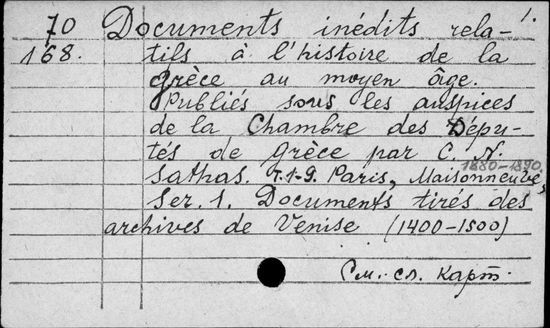 1.
70 Documents inédits rela-
168. tifs à l'histoire de la
grèce au moyen âge.
Publiés sous les auspices
de la Chambre des Dépu-
tés de grèce par C. N.
1880-1890
Sathas. T. 1-9. Paris, Maisonneuve,
Ser. 1. Documents tirés des
archives de Venise (1400-1500)
См. сл. карт.